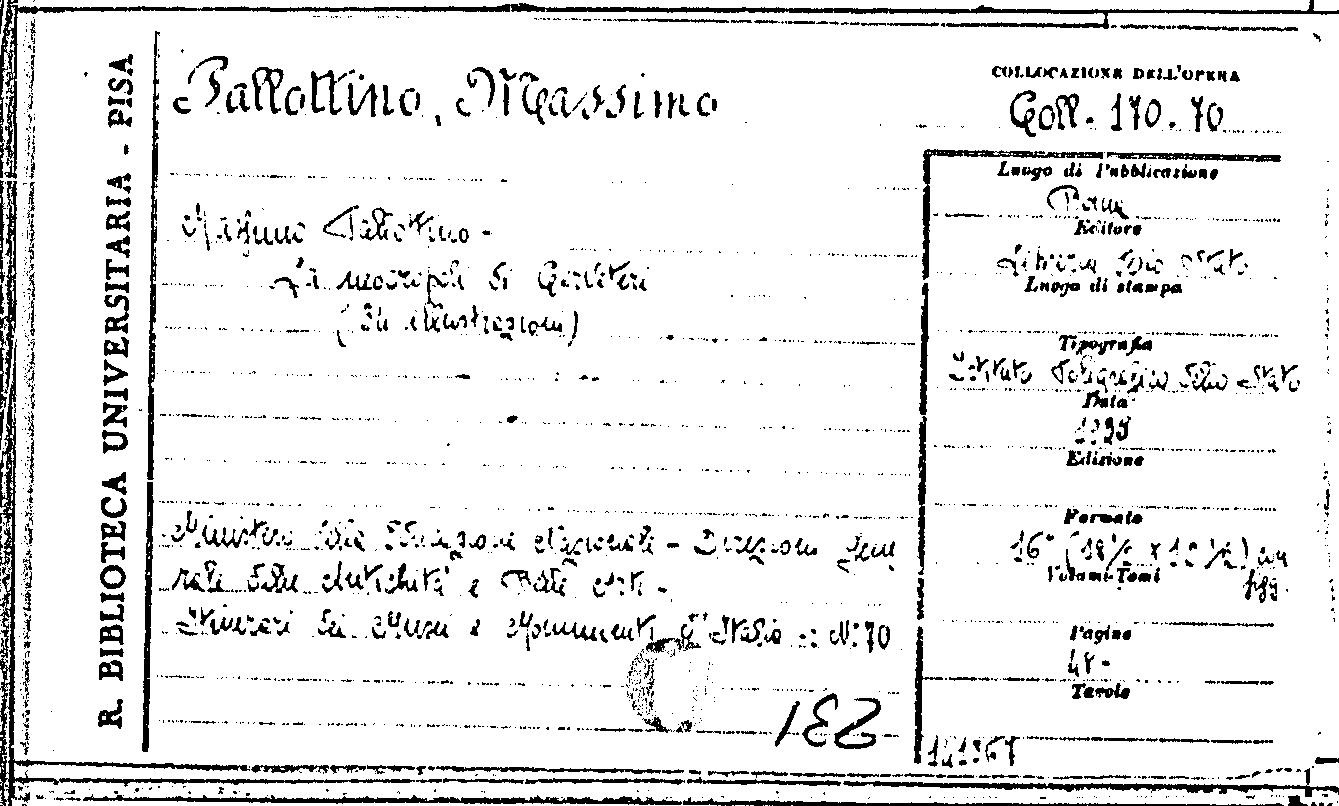 R. BIBLIOTECA UNIVERSITARIA - PISA
Pallottino, Massimo
COLLOCAZIONE DELL'OPERA
Coll. 170. 70
Massimo Pallottino -
La necropoli di Cerveteri
( illustrazioni)
Ministero della Educazione Nazionale - Direzione Gene
rale delle Antichità e Belle Arti -
Itinerari dei Musei e Monumenti d'Italia - N. 70
ISB
Luogo di Pubblicazione
Roma
Editore
Libreria dello Stato
Luogo di stampa
Tipografia
Istituto Poligrafico dello Stato
Data
Edizione
Formato
16° (18½ x 12½) con
figg.
Volumi-Tomi
Pagine
48 -
Tavole